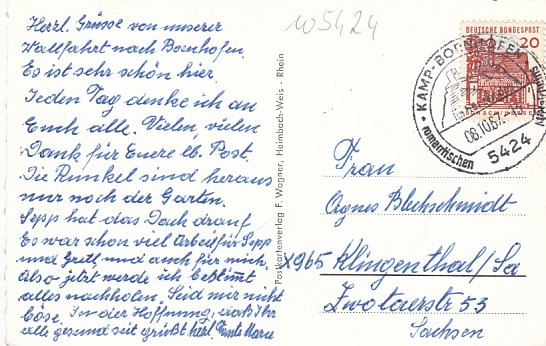 Herzl. Grüsse von unserer
Wallfahrt nach Bornhofen.
Es ist sehr schön hier.
Jeden Tag denke ich an
Euch alle. Vielen, vielen
Dank für Euere lb. Post.
Die Runkel sind heraus
nur noch der Garten.
Sepp hat das Dach drauf.
Es war schon viel Arbeit für Sepp
und Gretl und auch für mich.
Also jetzt werde ich bestimmt
alles nachholen. Seid mir nicht
böse. In der Hoffnung, daß Ihr
alle gesund seit grüßt herzl. Tante Marie
105424
Postkartenverlag F. Wagner, Heimbach-Weis - Rhein
DEUTSCHE BUNDESPOST
20
KAMP-BORNHOFEN
romantischen
08.10.67
5424
Frau
Agnes Blechschmidt
X965 Klingenthal/Sa
Zwotaerstr 53
Sachsen